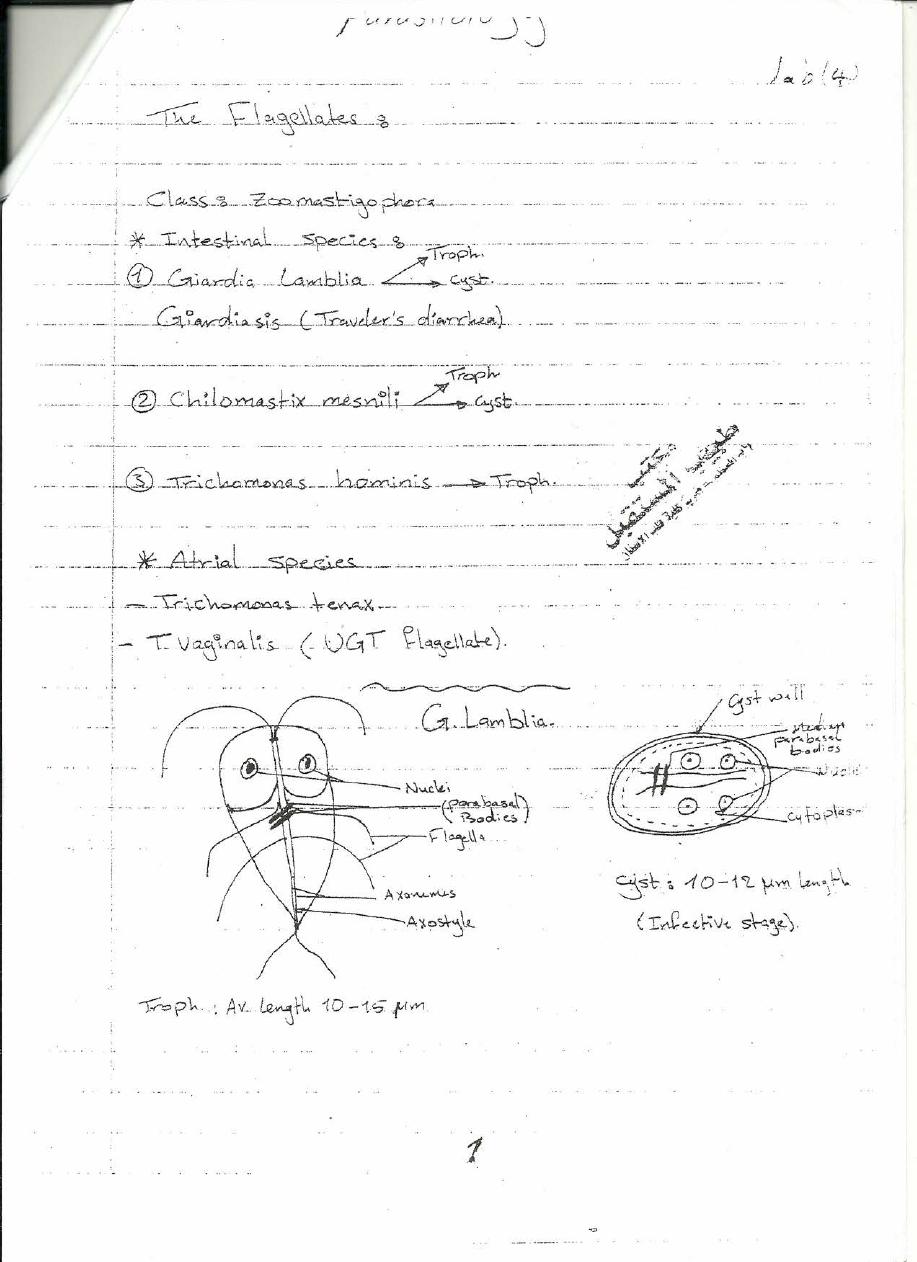 Parasitology
lab (4)
The Flagellates :
Class : Zoomastigophora
* Intestinal species :
① Giardia Lamblia → Troph.
→ Cyst.
Giardiasis (Traveler's diarrhea)
② Chilomastix mesnili → Troph
→ Cyst.
③ Trichomonas hominis → Troph.
مكتب
طريق المستقبل
* Atrial species
- Trichomonas tenax
- T. Vaginalis (- UGT Flagellate).
G. Lamblia.
Nuclei
(parabasal)
(Bodies)
Flagella
Axonemes
Axostyle
Troph : Av. Length 10-15 μm
Cyst wall
parabasal
bodies
Nuclei
Cytoplasm
Cyst : 10-12 μm length
(Infective stage).
1